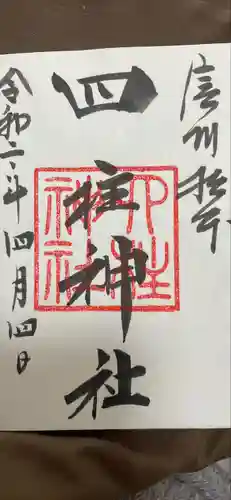 信州松本
四柱神社
四柱神社
令和二年四月四日